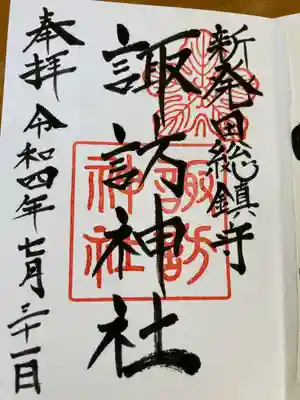 新発田総鎮守
諏訪神社
諏訪
神社
奉拝
令和四年七月三十一日